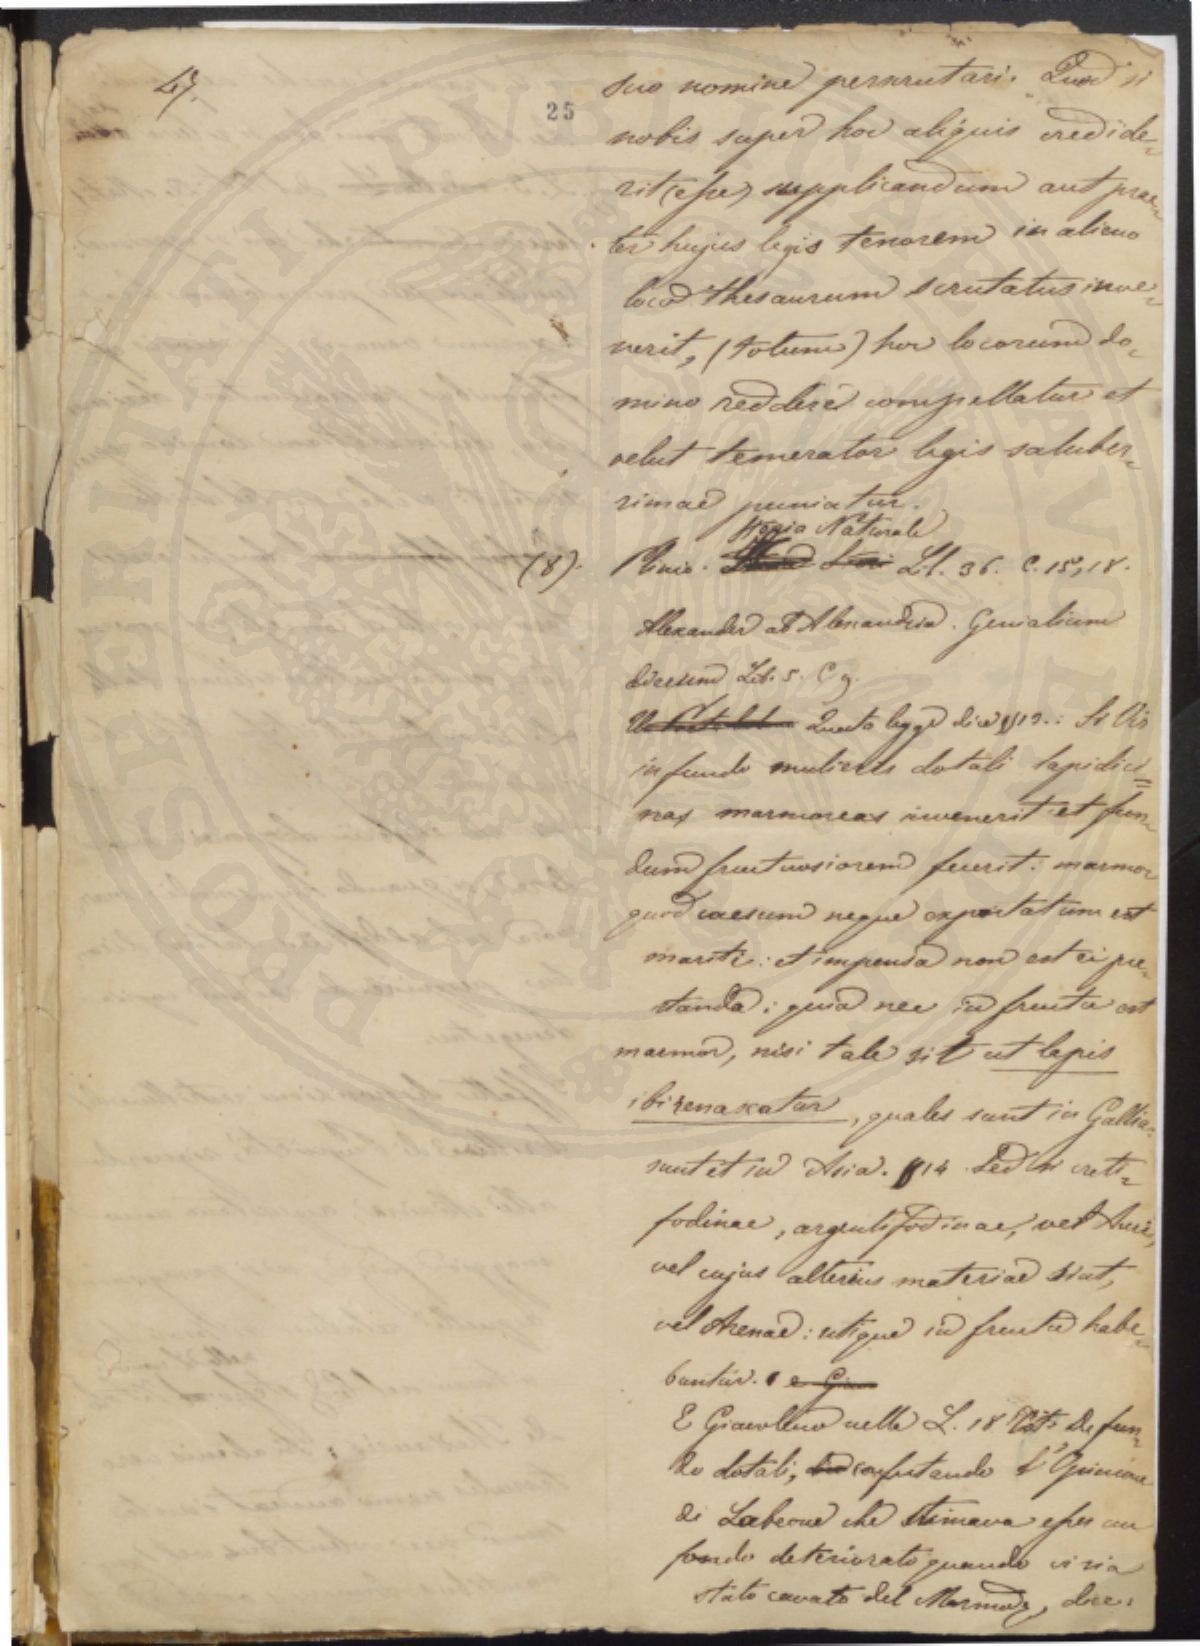 47.
25
suo nomine perscrutari. Quod si
nobis super hoc aliquis credide-
rit (esse) supplicandum aut prae-
ter hujus legis tenorem in alieno
loco thesaurum scrutatus inve-
nerit, (totum) hoc locorum do-
mino reddere compellatur et
velut temerator legis saluber-
rimae puniatur.
Storia Naturale
(8). Plinio. Lib. 36. C. 15, 18.
Alexander ab Alexandria. Genialium
dierum Lib. 5. C 9.
Questa legge dice § 13.: Si Vir
in fundo mulieris dotali lapidici=
nas marmoreas invenerit et fun-
dum fructuosiorem fecerit: marmor
quod caesum neque exportatum est
mariti: et impensa non est ei pre-
standa: quia nec in fructu est
marmor, nisi tale sit ut lapis
ibi renascatur, quales sunt in Gallia:
sunt et in Asia. § 14 Sed si creti-
fodinae, argentifodinae, vel Auri,
vel cujus alterius materiae sint,
vel Arenae: utique in fructu habe-
buntur.
E Giavoleno nella L. 18 Tit: De fun-
do dotali, confutando l'Opinione
di Labeone che stimava esser un
fondo deteriorato quando vi sia
stato cavato del Marmo, dice:
PROSPERITATI PVBLICAE